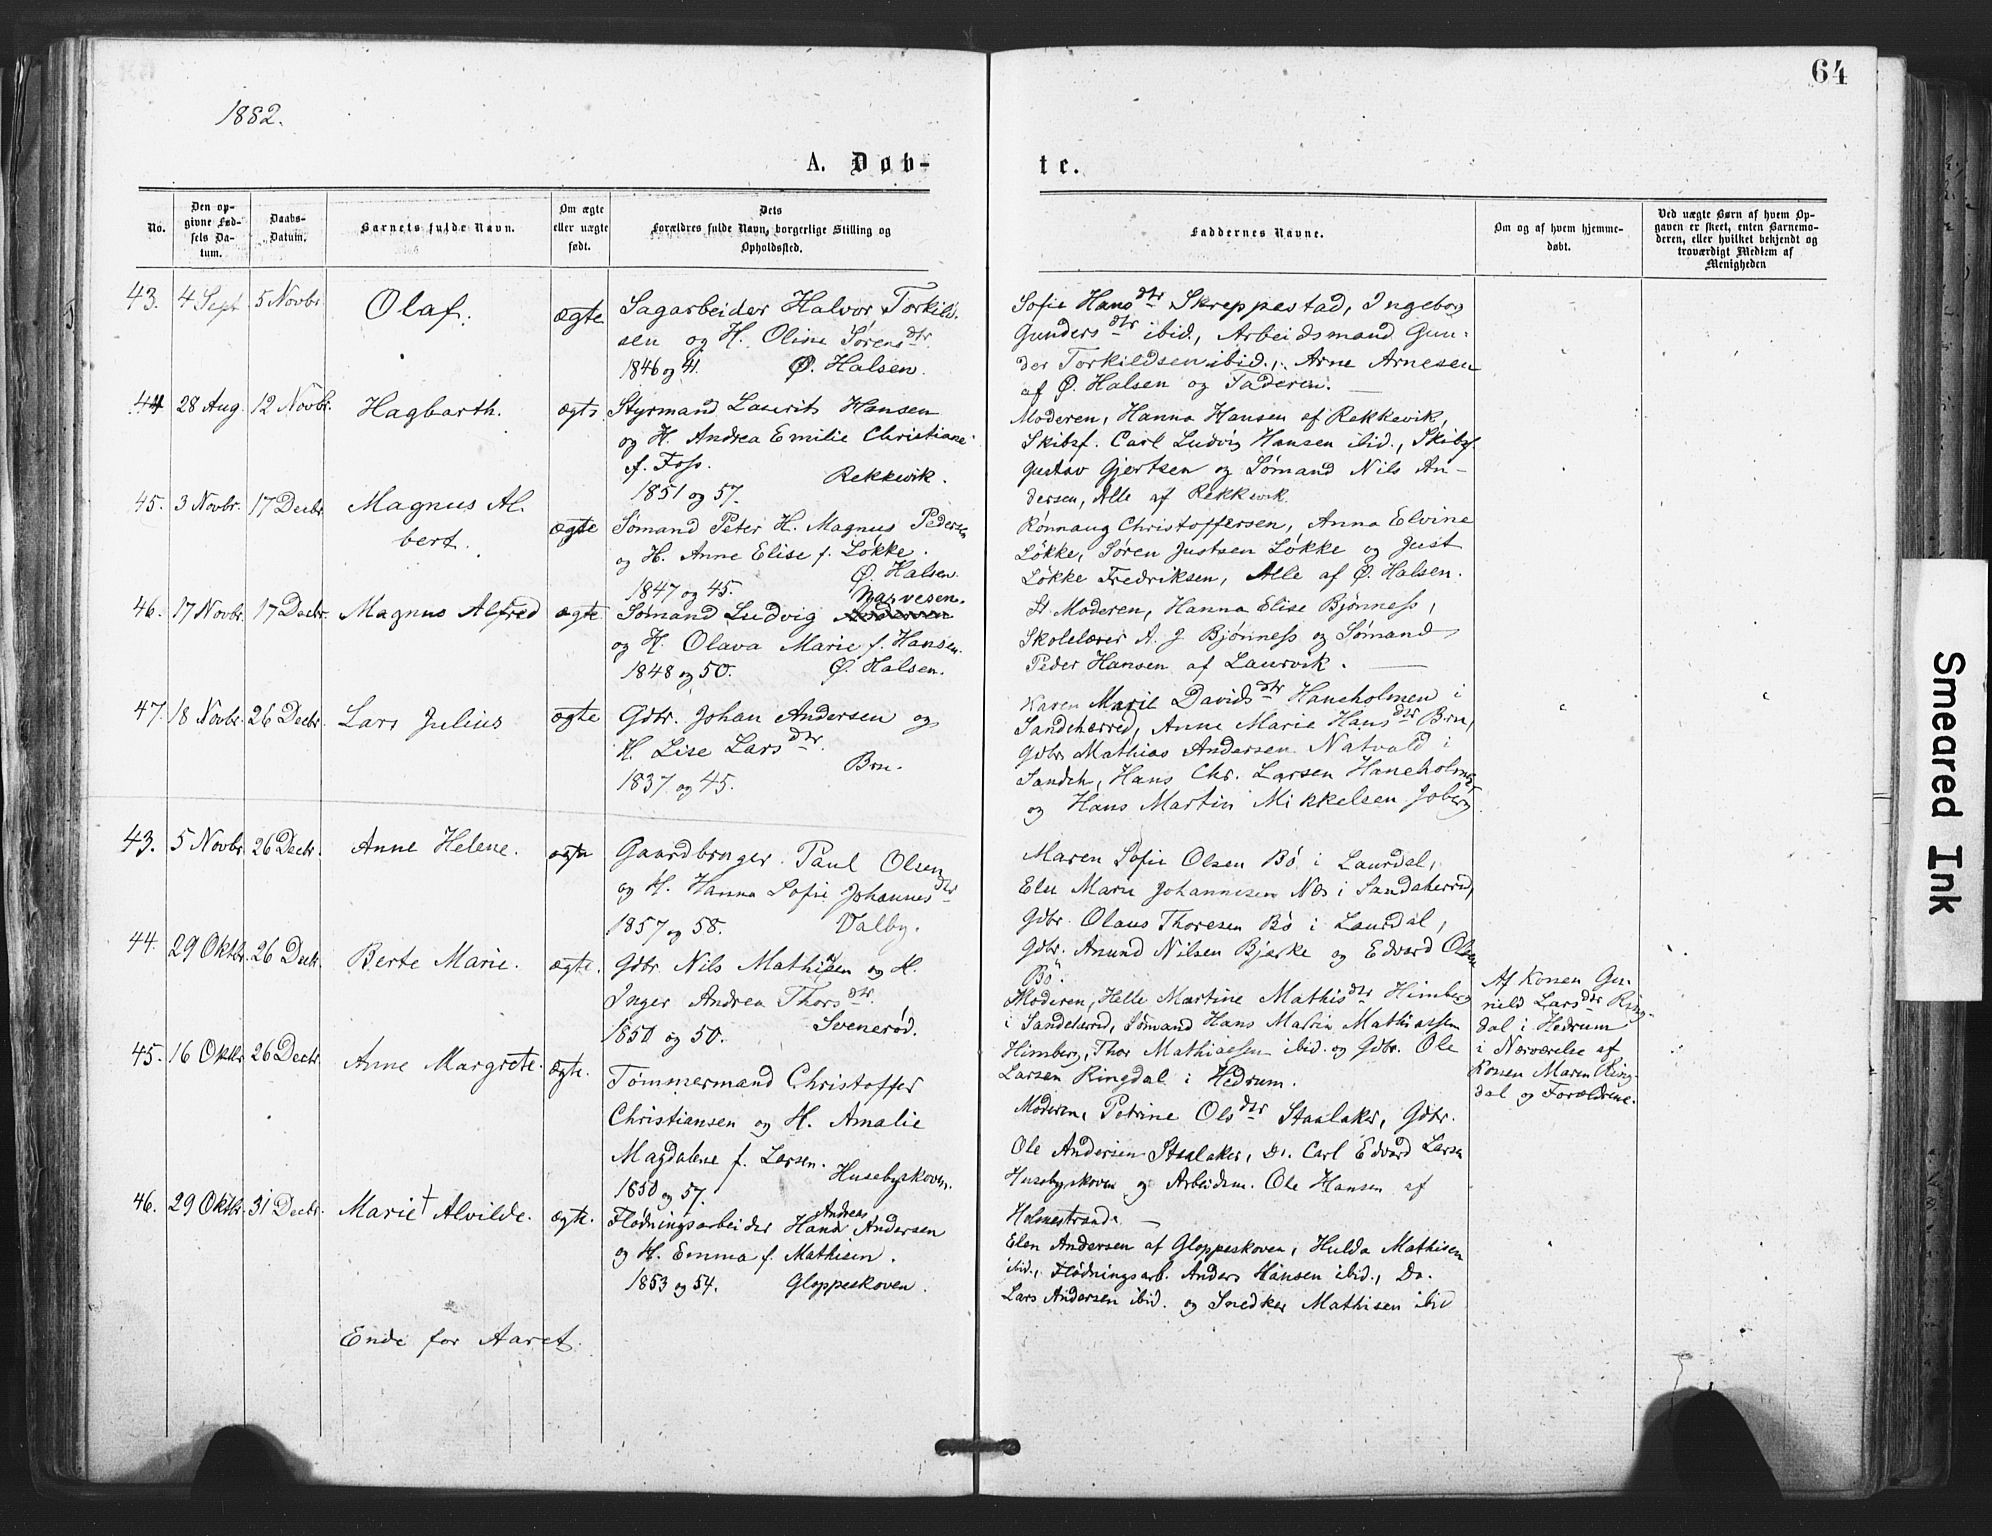 64
1882.
A. Døb-
te.
No.
Den op-
givne Fød-
sels Da-
tum.
Daabs-
Datum.
Barnets fulde Navn.
Om ægte
eller uægte
født.
Dets
Forældres fulde Navn, borgerlige Stilling og
Opholdssted.
Faddernes Navne.
Om og af hvem hjemme-
døbt.
Ved uægte Børn af hvem Op-
gaven er skeet, enten Barnemo-
deren, eller hvilket bekjendt og
troværdigt Medlem af
Menigheden
43. 4 Sept 5 Novbr. Olaf. ægte
Sagarbeider Halvor Torkild-
sen og H. Oline Sørensdtr.
1846 og 41. Ø. Halsen.
Sofie Hansdtr Skreppestad, Ingeborg
Gundersdtr ibid., Arbeidsmand Gun-
der Torkildsen ibid., Arne Arnesen
af Ø. Halsen og Faderen.
44 28 Aug. 12 Novbr. Hagbarth. ægte
Styrmand Laurits Hansen
og H. Andrea Emilie Christiane
f. Foss. Rekkevik.
1851 og 57.
Moderen, Hanna Hansen af Rekkevik,
Skibsf. Carl Ludvig Hansen ibid., Skibsf.
Gustav Gjertsen og Sømand Nils An-
dersen, Alle af Rekkevik.
45. 3 Novbr. 17 Decbr. Magnus Al-
bert. ægte
Sømand Peter H. Magnus Pedersen
og H. Anne Elise f. Løkke.
Ø. Halsen.
1847 og 45.
Rønnaug Christoffersen, Anna Elvine
Løkke, Søren Justsen Løkke og Just
Løkke Fredriksen, Alle af Ø. Halsen.
46. 17 Novbr. 17 Decbr. Magnus Alfred ægte
Narvesen.
Sømand Ludvig
og H. Olava Marie f. Hansen.
1848 og 50. Ø. Halsen.
Moderen, Hanna Elise Bjønness,
Skolelærer A. J. Bjønness og Sømand
Peder Hansen af Laurvik.
47. 18 Novbr. 26 Decbr. Lars Julius ægte
Gdbr. Johan Andersen og
H. Lise Larsdtr.
Brn.
1837 og 45.
Karen Marie Davidsdtr Haneholmen i
Sandeherred, Anne Marie Hansdtr Brn,
Gdbr. Mathias Andersen Natvald i
Sandeh, Hans Chr. Larsen Haneholmen
og Hans Martin Mikkelsen Joberg.
43. 5 Novbr. 26 Decbr. Anne Helene. ægte
Gaardbruger Paul Olsen
og H. Hanna Sofie Johannesdtr
1857 og 58. Valby.
Maren Sofie Olsen Bø i Laurdal,
Elen Marie Johannesen Næs i Sandeherred,
Gdbr. Olaus Thoresen Bø i Laurdal,
Gdbr. Anund Nilsen Bjerke og Edvard Olsen
Bø.
44. 29 Oktbr. 26 Decbr. Berte Marie. ægte.
Gdbr. Nils Mathisen og H.
Inger Andrea Thorsdtr.
1850 og 50. Svenerød.
Moderen, Helle Martine Mathisdtr Himberg
i Sandeherred, Sømand Hans Martin Mathiassen
Himberg, Thor Mathiassen ibid. og Gdbr. Ole
Larsen Ringdal i Hedrum.
Af Konen Gu-
nild Larsdtr Ring-
dal i Hedrum
i Nærværelse af
Konen Maren Ring-
dal og Forældrene.
45. 16 Oktbr. 26 Decbr. Anne Margrete. ægte.
Tømmermand Christoffer
Christiansen og H. Amalie
Magdalene f. Larsen.
Husebyskoven.
1850 og 57.
Moderen, Petrine Olsdtr Staalaker, Gdbr.
Ole Andersen Staalaker, Do. Carl Edvard Larsen
Husebyskoven og Arbeidsm. Ole Hansen af
Holmestrand.
46. 29 Oktbr. 31 Decbr. Marie Alvilde. ægte.
Andreas
Flødningsarbeider Hans Andersen
og H. Emma f. Mathisen.
1853 og 54. Gloppeskoven.
Elen Andersen af Gloppeskoven, Hulda Mathisen
ibid., Flødningsarb. Anders Hansen ibid., Do.
Lars Andersen ibid. og Snedker Mathisen ibid
Ende for Aaret.
Smeared Ink